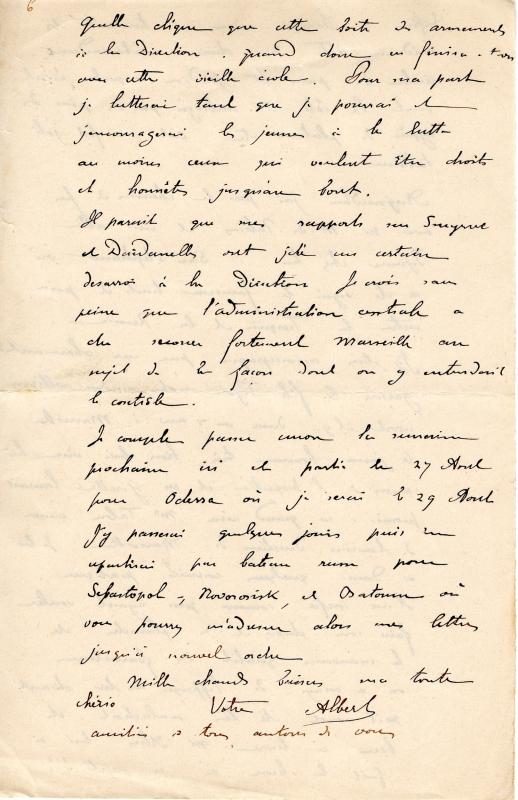 6
Quelle clique que cette boîte des armements
à la Direction. quand donc en finira-t-on
avec cette vieille école. Pour ma part
je lutterai tant que je pourrai et
j'encouragerai les jeunes à la lutte
au moins ceux qui veulent être droits
et honnêtes jusqu'au bout.
Il parait que mes rapports sur Smyrne
et Dardanelles ont jeté un certain
desarroi à la Direction Je crois sans
peine que l'administration centrale a
du secouer fortement Marseille au
sujet de la façon dont on y entendait
le contrôle.
Je compte passer encore la semaine
prochaine ici et partir le 27 Aout
pour Odessa où je serai le 29 Aout
J'y passerai quelques jours puis en
repartirai par bateau russe pour
Sébastopol, Novorosisk, et Batoum où
vous pourrez m'adresser alors mes lettres
jusqu'à nouvel ordre
Mille chauds baisers ma toute
chérie Votre Albert
amitiés à tous autour de vous